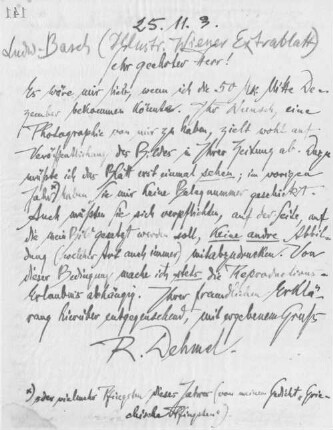 [14]
25.11.3.
Ludw. Basch (Illustr. Wiener Extrablatt)
Sehr geehrter Herr!
Es wäre mir lieb, wenn ich die 50 Mk. Mitte De-
zember bekommen könnte. Ihr Wunsch, eine
Photographie von mir zu haben, zielt wohl auf
Veröffentlichung der Bilder in Ihrer Zeitung ab. Dazu
müßte ich das Blatt erst einmal sehen; im vorigen
Jahr*) haben Sie mir keine Belegnummer geschickt.
Auch müßten Sie sich verpflichten, auf der Seite, auf
die mein Bild gesetzt werden soll, keine andre Abbil-
dung (welcher Art auch immer) mitabzudrucken. Von
dieser Bedingung mache ich stets die Reproductions-
Erlaubnis abhängig. Ihrer freundlichen Erklä-
rung hierüber entgegensehend, mit ergebenem Gruß
R. Dehmel.
*) oder vielmehr Pfingsten dieses Jahres (von meinem Gedicht "Grie-
chische Pfingsten").